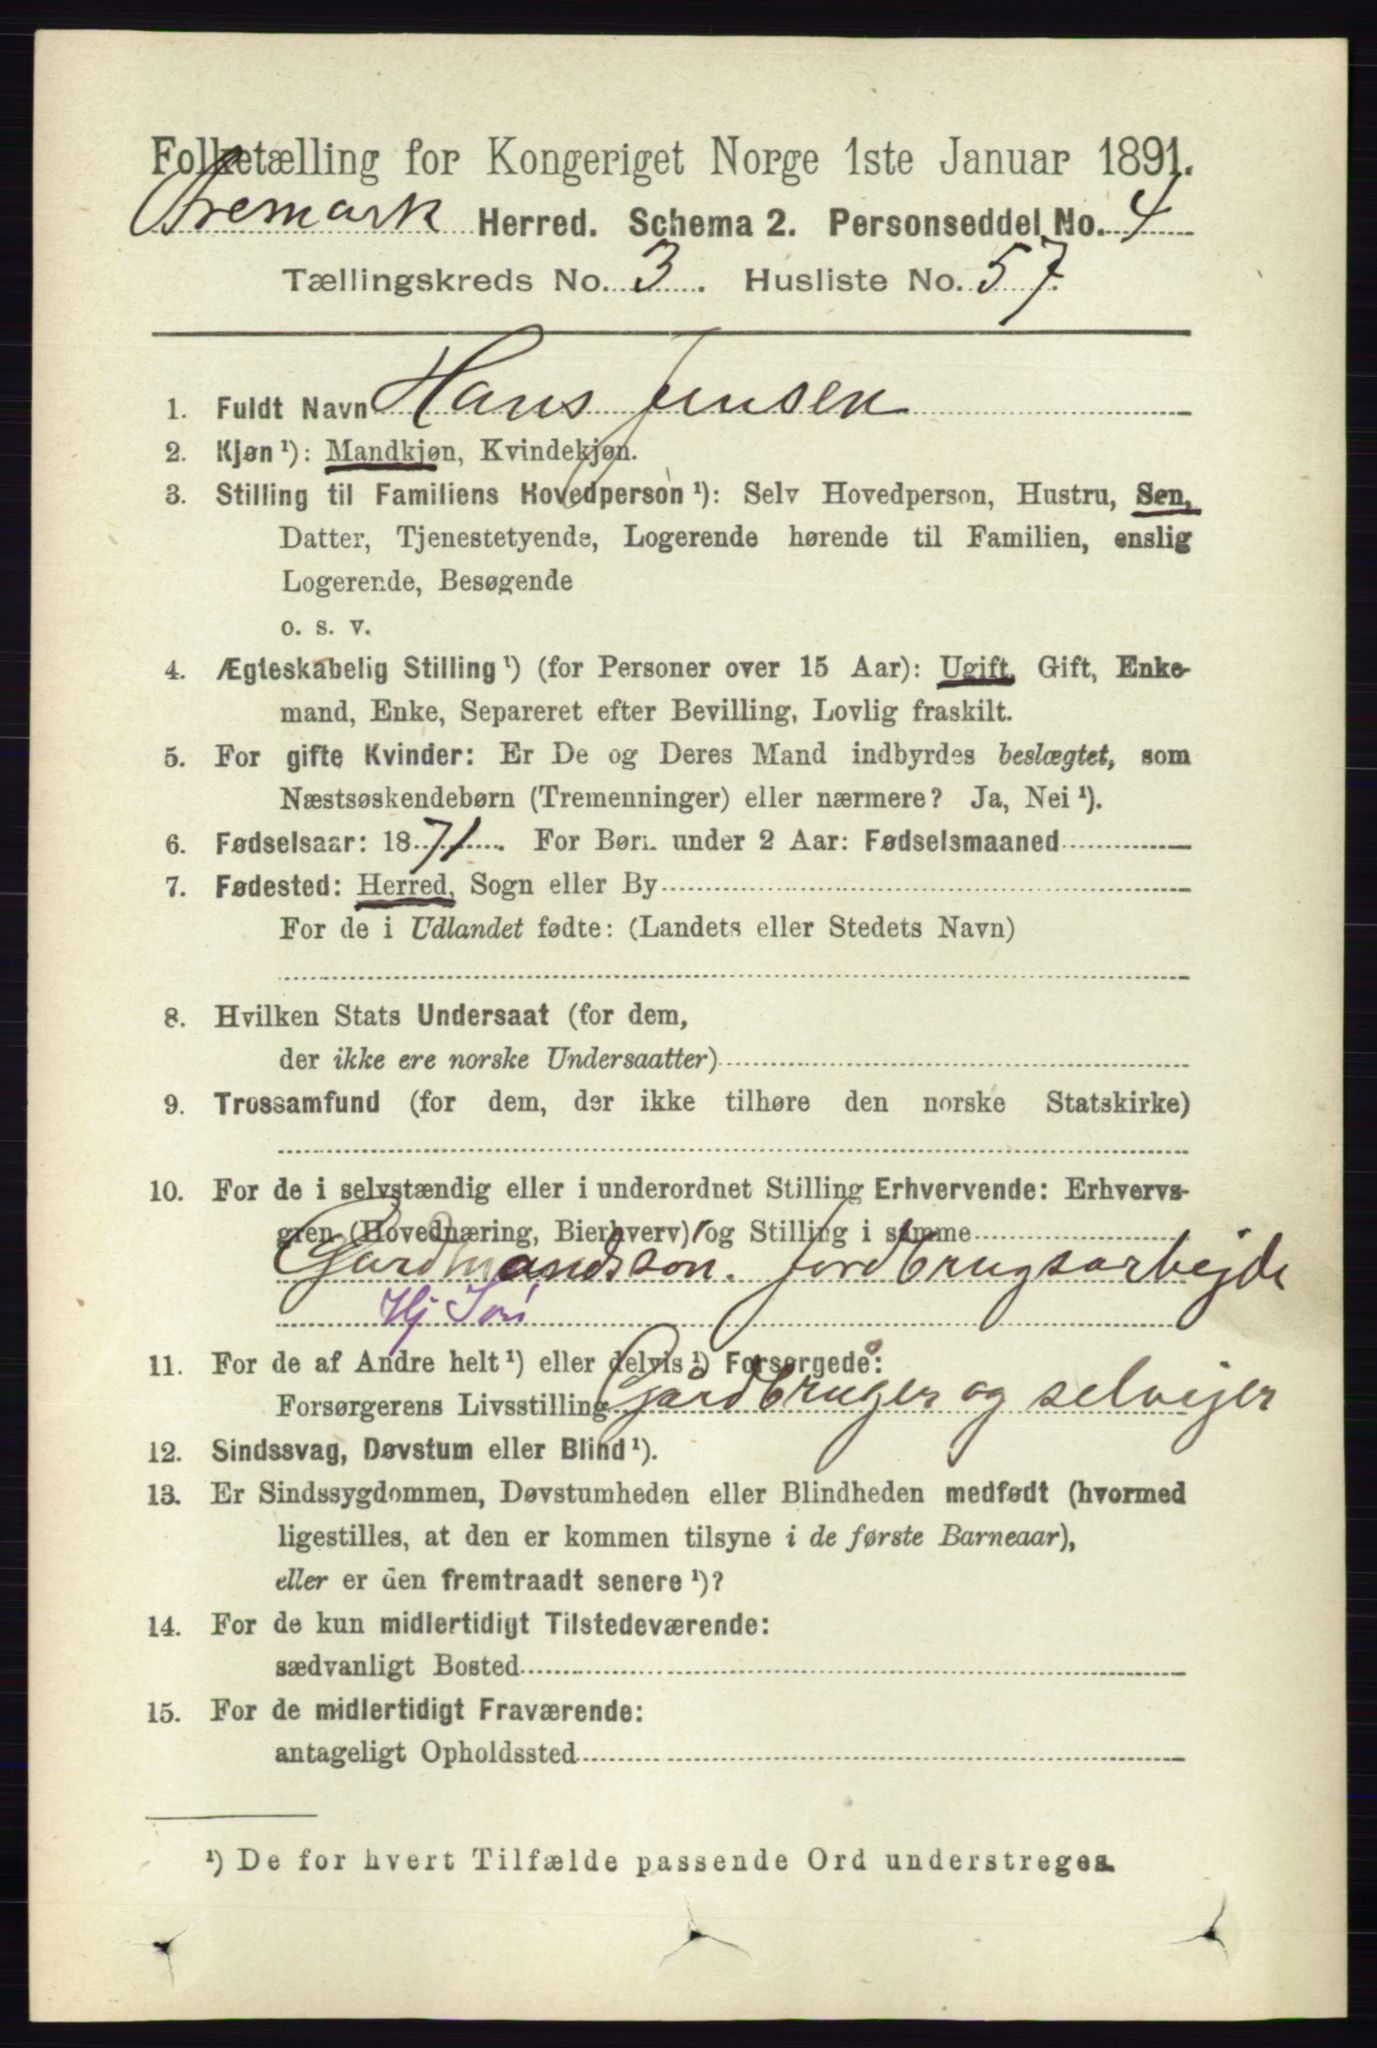 Folketælling for Kongeriget Norge 1ste Januar 1891.
Øremark Herred. Schema 2. Personseddel No. 4
Tællingskreds No. 3. Husliste No. 57.
1. Fuldt Navn Hans Jensen
2. Kjøn ¹): Mandkjøn, Kvindekjøn.
3. Stilling til Familiens Hovedperson ¹): Selv Hovedperson, Hustru, Søn,
Datter, Tjenestetyende, Logerende hørende til Familien, enslig
Logerende, Besøgende
o. s. v.
4. Ægteskabelig Stilling ¹) (for Personer over 15 Aar): Ugift, Gift, Enke-
mand, Enke, Separeret efter Bevilling, Lovlig fraskilt.
5. For gifte Kvinder: Er De og Deres Mand indbyrdes beslægtet, som
Næstsøskendebørn (Tremenninger) eller nærmere? Ja, Nei ¹).
6. Fødselsaar: 1871. For Børn under 2 Aar: Fødselsmaaned
7. Fødested: Herred, Sogn eller By
For de i Udlandet fødte: (Landets eller Stedets Navn)
8. Hvilken Stats Undersaat (for dem,
der ikke ere norske Undersaatter)
9. Trossamfund (for dem, der ikke tilhøre den norske Statskirke)
10. For de i selvstændig eller i underordnet Stilling Erhvervende: Erhvervs-
gren (Hovednæring, Bierhverv) og Stilling i samme
Gardmandsson. Jordbrugsarbejde
Hj Søn
11. For de af Andre helt ¹) eller delvis ¹) Forsørgede:
Forsørgerens Livsstilling Gårdbruger og selvejer
12. Sindssvag, Døvstum eller Blind ¹).
13. Er Sindssygdommen, Døvstumheden eller Blindheden medfødt (hvormed
ligestilles, at den er kommen tilsyne i de første Barneaar),
eller er den fremtraadt senere ¹)?
14. For de kun midlertidigt Tilstedeværende:
sædvanligt Bosted
15. For de midlertidigt Fraværende:
antageligt Opholdssted
¹) De for hvert Tilfælde passende Ord understreges.